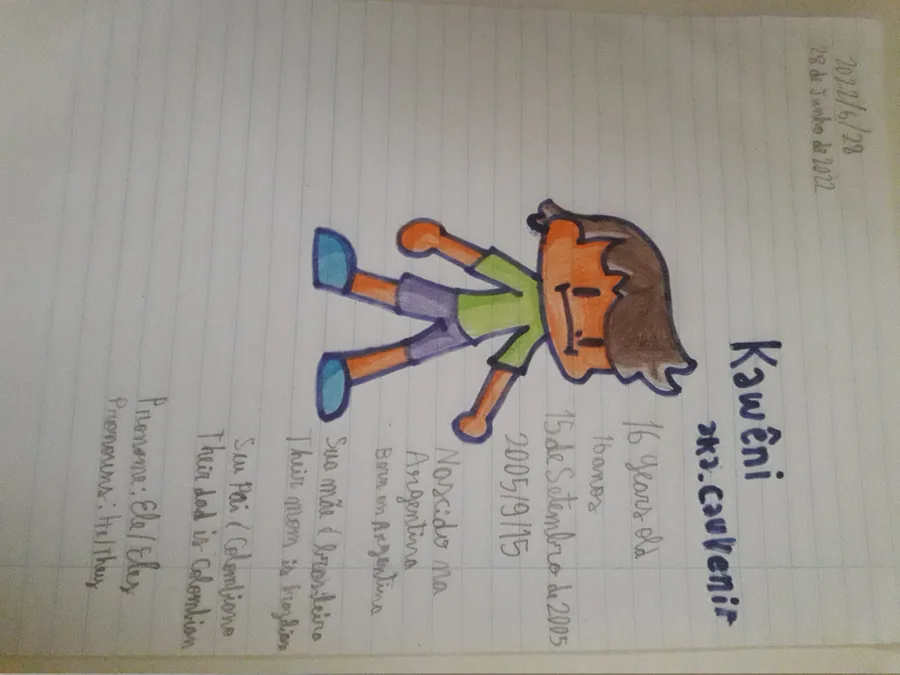 2022/6/28
28 de Junho de 2022
Kawêni
aka.cauvenir
16 years old
16 anos
15 de Setembro de 2005
2005/9/15
Nascido na
Argentina
Born in Argentina
Sua mãe é brasileira
Their mom is brazilian
Seu Pai é Colombiano
Their dad is Colombian
Pronome: Ele/Eles
Pronouns: He/They